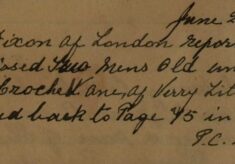 June 2
ixon of London repor
osed Two Mens Old um
Crochet. One, of Verry Lit
ed back to Page 45 in
P.C.